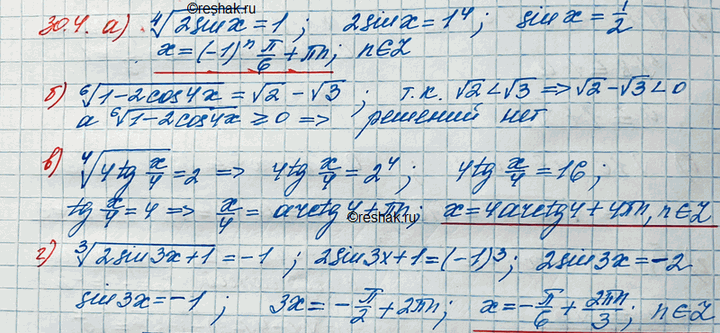 30.4. а) ⁴√(2sinx) = 1 ; 2sinx = 1⁴ ; sinx = 1/2
x = (-1)ⁿ π/6 + πn ; n∈Z
©reshak.ru
б) ⁶√(1-2cos4x) = √2 - √3 ; т.к. √2 < √3 => √2 - √3 < 0
а ⁶√(1-2cos4x) ≥ 0 => решений нет
в) ⁴√(4tg x/4) = 2 => 4tg x/4 = 2⁴ ; 4tg x/4 = 16 ;
tg x/4 = 4 => x/4 = arctg4 + πn ; x = 4arctg4 + 4πn, n∈Z
©reshak.ru
г) ³√(2sin3x+1) = -1 ; 2sin3x+1 = (-1)³ ; 2sin3x = -2
sin3x = -1 ; 3x = -π/2 + 2πn ; x = -π/6 + 2πn/3 ; n∈Z